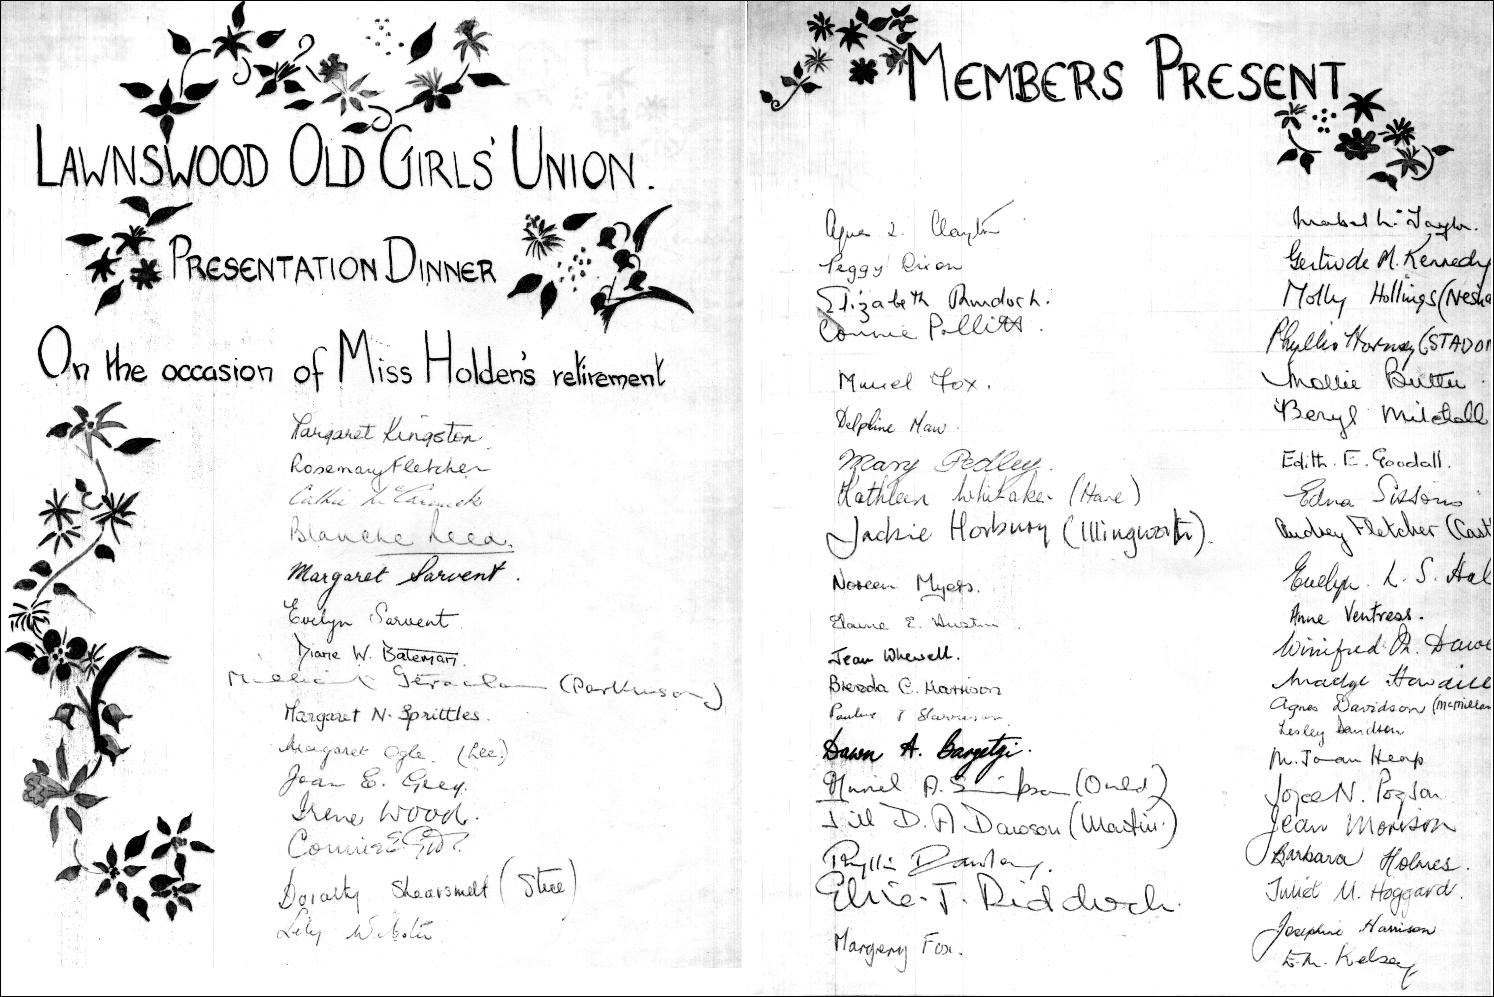 LAWNSWOOD OLD GIRLS' UNION.
PRESENTATION DINNER
On the occasion of Miss Holden's retirement
Margaret Kingston
Rosemary Fletcher
Blanche
Margaret Sarvent.
Evelyn Sarvent
Diane W. Bateman.
(Parkinson)
Margaret N. Sprittles.
Margaret Ogle. (Lee)
Joan E. Grey.
Irene Wood.
Connie
Dorothy Shearsmelt
Lily Webster
MEMBERS PRESENT
Agnes L. Clayton
Peggy Dixon
Elizabeth Murdoch.
Connie Pollitt.
Muriel Fox.
Delphine Maw.
Mary Pedley.
Kathleen Whitaker (Hare)
Jackie Horbury (Illingworth).
Noreen Myers.
Elaine E. Austin.
Jean Whewell.
Brenda C. Harrison
Dawn A. Bargetzi.
Muriel A. Simpson (Ould)
Jill D. A. Dawson (Martin.)
Phyllis
Elsie. J. Riddoch.
Margery Fox.
Mabel L. Taylor.
Gertrude M. Kennedy
Molly Hollings (
Phyllis Hornsey (
Mollie Butler.
Beryl Mitchell
Edith. E. Goodall.
Edna Sissons
Audrey Fletcher (
Evelyn. L. S.
Anne Ventress.
Winifred
Madge
Agnes Davidson (McMillan
Lesley Davidson
M. Joan Heap
Joyce N.
Jean Morison
Barbara Holmes.
Juliet M. Hoggard.
Josephine Harrison
E.M. Kelsey